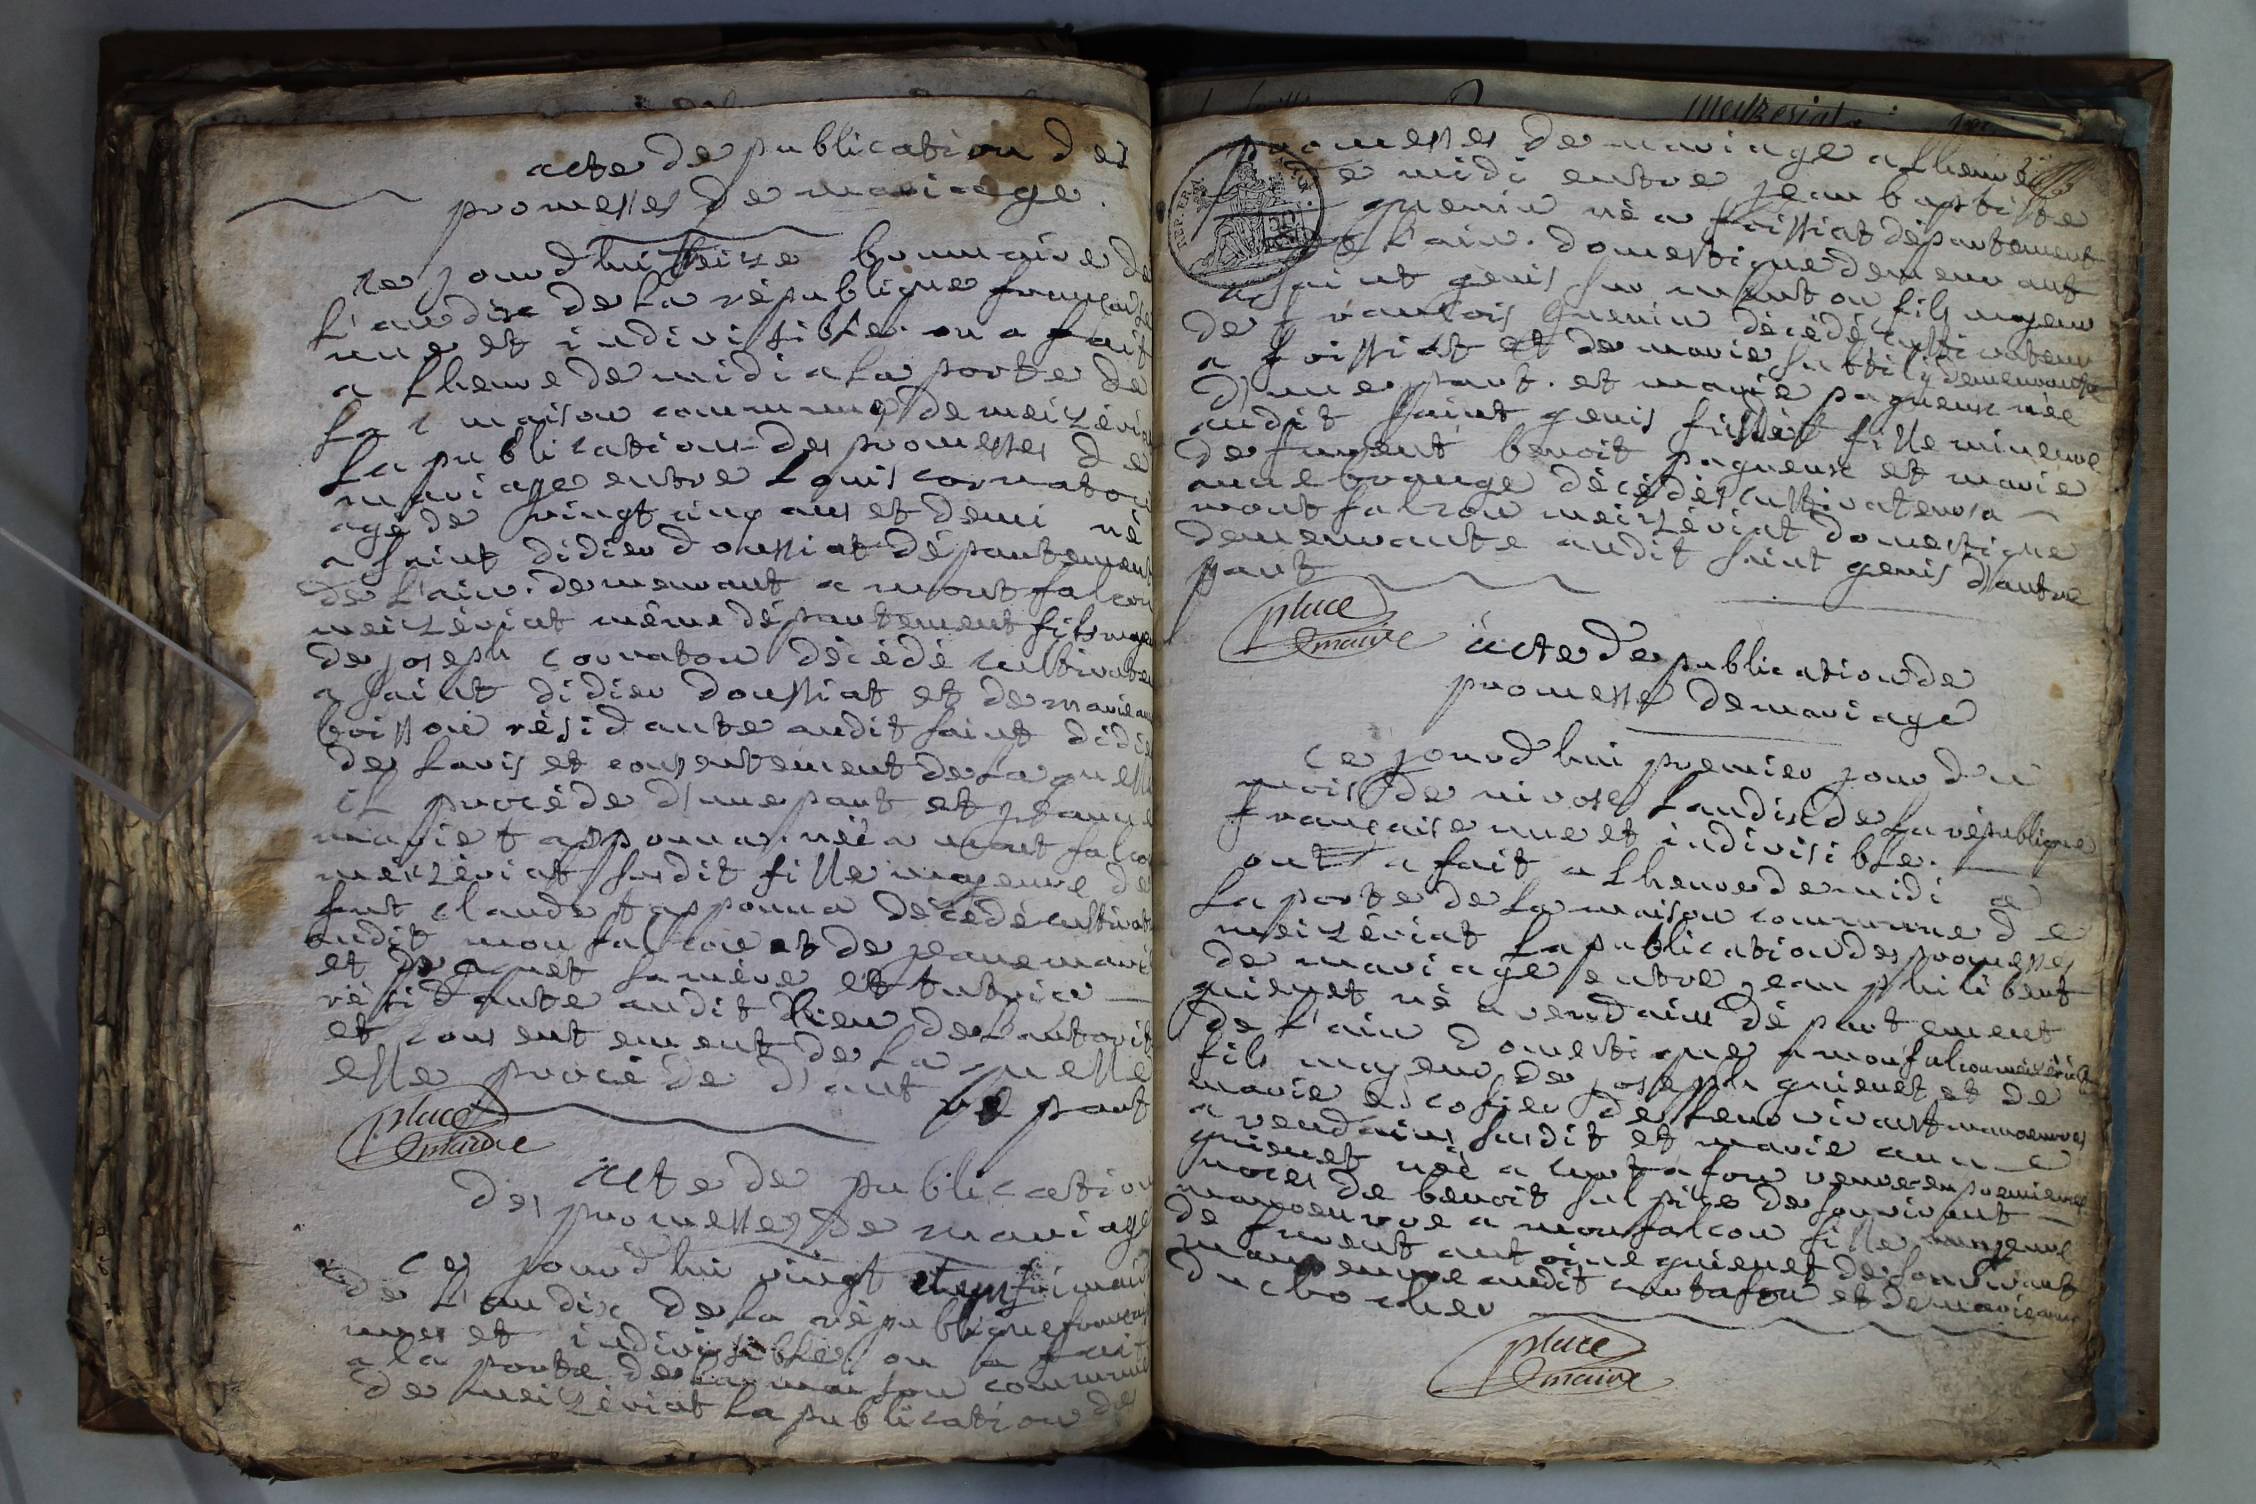 acte de publication des
promesses de mariage.
ce jourd'hui seize brumaire de
l'an dix de la république française
une et indivisible. on a fait
a lheure de midi a la porte de
la maison commune de meizériat
la publication des promesses de
mariage entre Louis cornaton
agé de vingt cinq ans et demi né
a saint didier doussiat département
de l'ain. demeurant a montfalcon
meizériat même département fils majeur
de joseph cornaton décédé cultivateur
a saint didier doussiat et de marie
boisson résidante audit saint didier
de lavis et consentement de laquelle
il procéde d'une part et jeanne
marie tapponna. née a montfalcon
meizériat susdit fille mineure de
fut claude tapponna décédé cultivateur
audit monfalcon et de jeane marie
et sa mère et tutrice
résidante audit lieu de lautorité
et consentement de laquelle
elle procéde d'autre part
place
maire
acte de publication
des promesses de mariage
ce jourd'hui vingt frimaire
de l'an dix de la république française
une et indivisible. on a fait
a la porte de la maison commune
de meizériat la publication de
promesses de mariage a lheure
de midi entre jean baptiste
guenin né a foissiat département
de l'ain. domestique demeurant
a saint genis sur menton fils majeur
de françois guenin décédé cultivateur
a foissiat et de marie demeurante
d'une part. et marie pagneux née
audit saint genis fille mineure
de furent benoit pagneux et marie
anne brange décédés cultivateurs a
montfalcon meizériat domestique
demeurante audit saint genis d'autre
part
place
maire
acte de publication de
promesse de mariage
ce jourd'hui premier jour du
mois de nivose l'an dix de la république
française une et indivisible.
ont a fait a lheure de midi a
la porte de la maison commune de
meizériat la publication des promesses
de mariage entre jean philibert
guienet né a vendains département
de l'ain domestique a monfalcon meizériat
fils majeur de joseph guienet et de
marie escofier de leur vivant manoeuvres
a vendains susdit et marie anne
guienet née a curtafon veuve en premiere
noces de benoit sulpice de son vivant
manoeuvre a monfalcon fille majeure
de furent antoine guienet de son vivant
manoeuvre audit curtafon et de marie anne
du brocher
place
maire